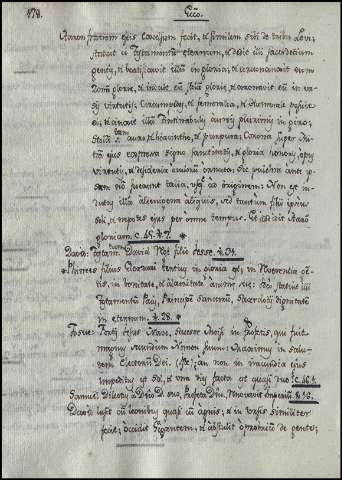 178.
Ecco.
Aaron fratrem ejus excelsum fecit, et similem sibi de tribu Levi;
Statuit ei Testamentum eternum, et dedit illi sacerdotium
gentis, et beatificavit illum in gloria, et circumcinxit eum
Zona gloriæ, et induit eum stola gloriæ, et coronavit eum in va-
sis virtutis; et humerale posuit
ei, et cinxit illum tintinnabulis aureis plurimis in giro;
Stola auro, et hiacintho, et purpura; Corona super Mi-
tram ejus expressa signo sanctitatis, et gloria honoris, opus
virtutis, et desideria oculorum ornata; Sic pulchra ante ip-
sam non fuerunt talia, usque ad originem: Non est in-
dutus illa alienigena aliquis, sed tantum filii ipsius
soli, et nepotes ejus per omne tempus. Et addidit Aaron
gloriam. c. 45. V. 7.
David: Testam. David Rot filio Jesse. V. 31.
Phinees filius Eleazari tertius in gloria est, in
in bonitate, et alacritate animæ suæ: Ideo statuit illi
Testamentum Pacis, Principem sanctorum, sacerdotii dignitatis
in eternum. V. 28.
Josue: Fortis Jesus Nave, sucesor Moisi in Profetis, qui fuit
magnus secundum Nomen suum: Maximus in salu-
tem Electorum Dei. An non in iracundia ejus
impeditus est Sol, et una dies facta est quasi duo? c. 46.
Samuel: Dilectus a Dno D. suo, Profeta Dni, renovavit imperium V. 16.
David: lusit cum leonibus quasi cum agnis; et in ursis similiter
fecit; occidit Gigantem; et abstulit oprobrium de gente;